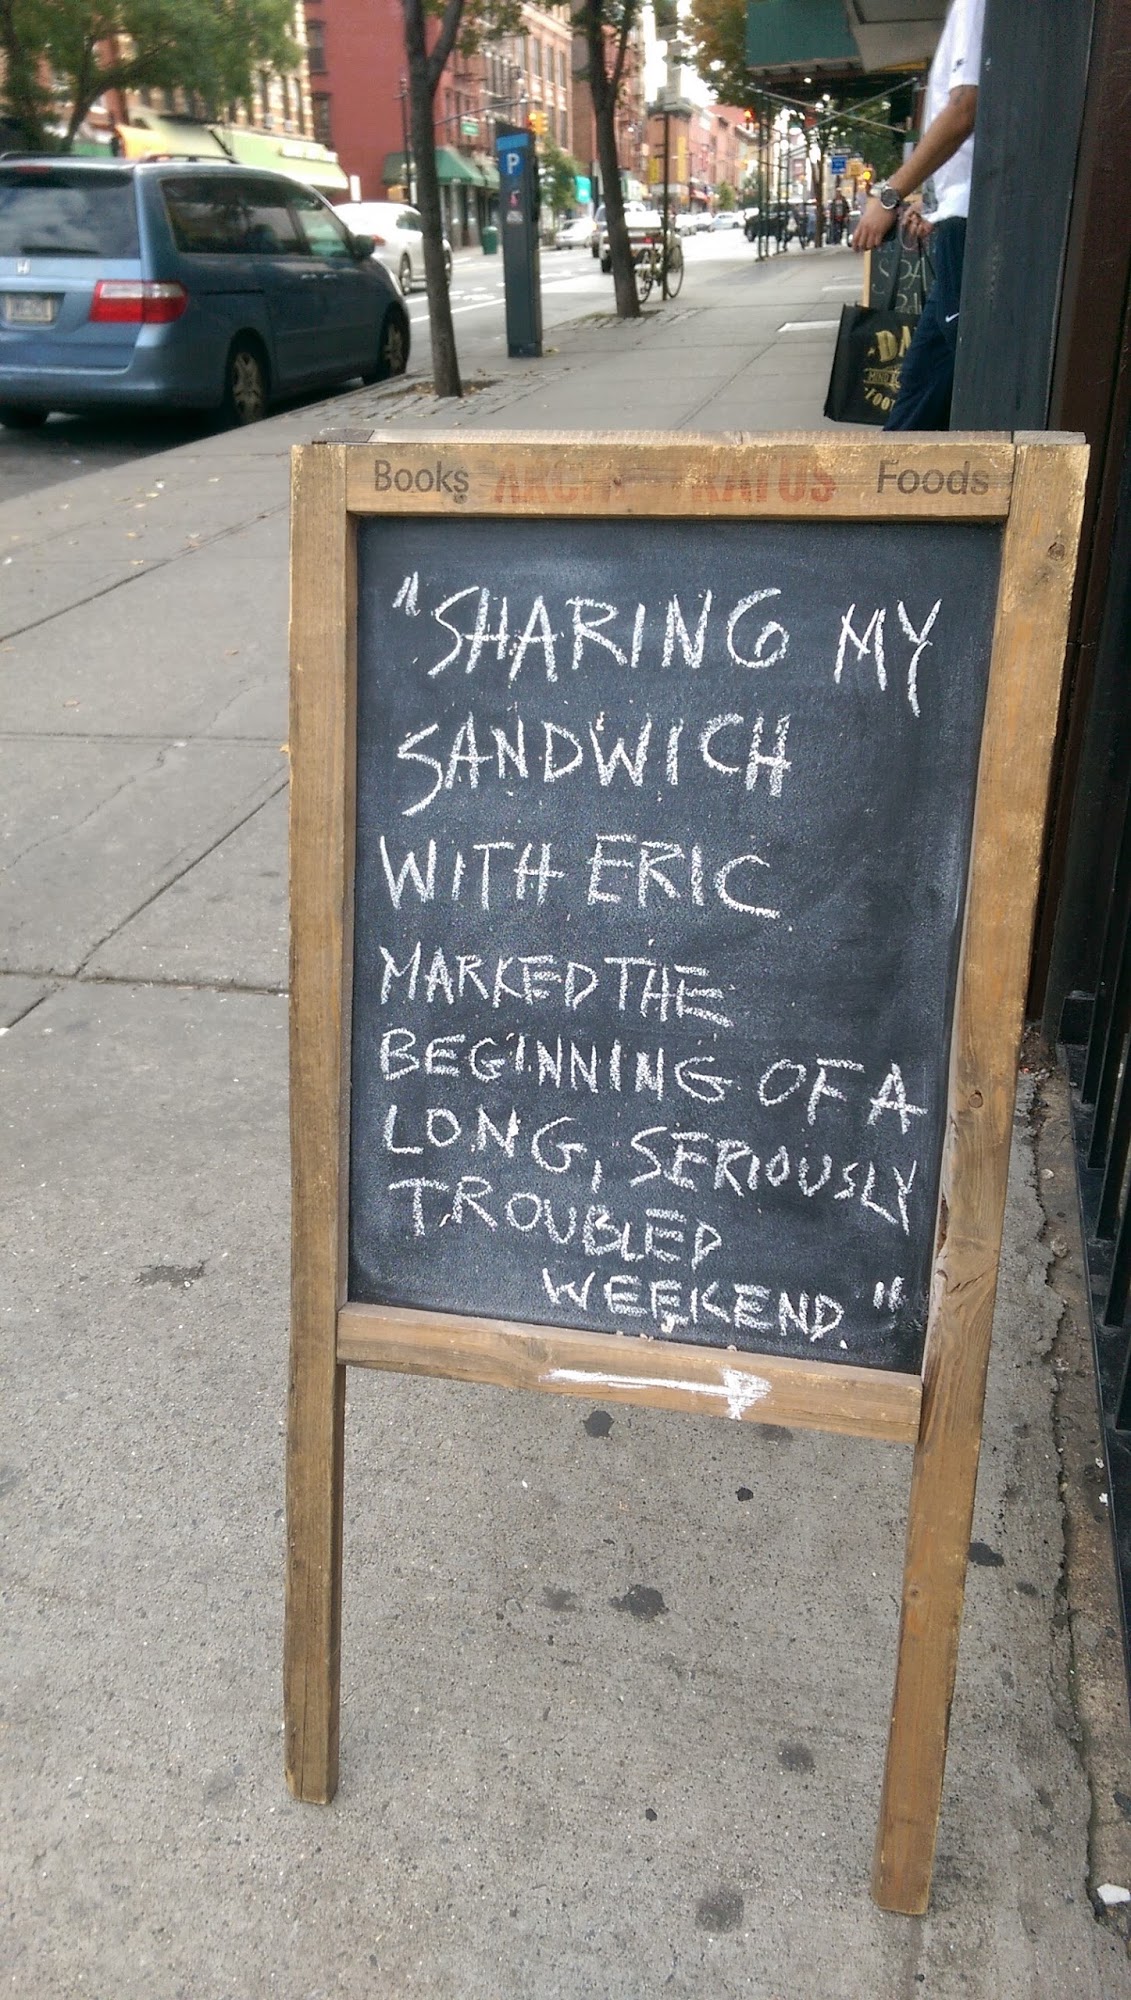 P
Books Foods
"SHARING MY
SANDWICH
WITH ERIC
MARKED THE
BEGINNING OF A
LONG, SERIOUSLY
TROUBLED
WEEKEND."